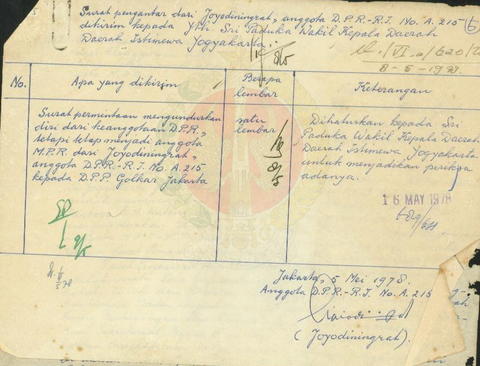 Surat pengantar dari Joyodiningrat, anggota D.P.R.-R.I. No. A.215
dikirim kepada Yth. Sri Paduka Wakil Kepala Daerah
Daerah Istimewa Yogyakarta.
8-5-1978
No.
Apa yang dikirim
Berapa lembar
Keterangan
Surat permentaan mengundurkan
diri dari keanggotaan D.P.R.,
tetapi tetap menjadi anggota
M.P.R. dari Joyodiningrat,
anggota D.P.R.-R.I. No. A.215
kepada D.P.P. Golkar Jakarta
satu
lembar
Dihaturkan kepada Sri
Paduka Wakil Kepala Daerah
Daerah Istimewa Yogyakarta
untuk menjadikan periksa
adanya.
16 MAY 1978
Jakarta, 5 Mei 1978.
Anggota D.P.R.-R.I. No. A.215
(Joyodiningrat).